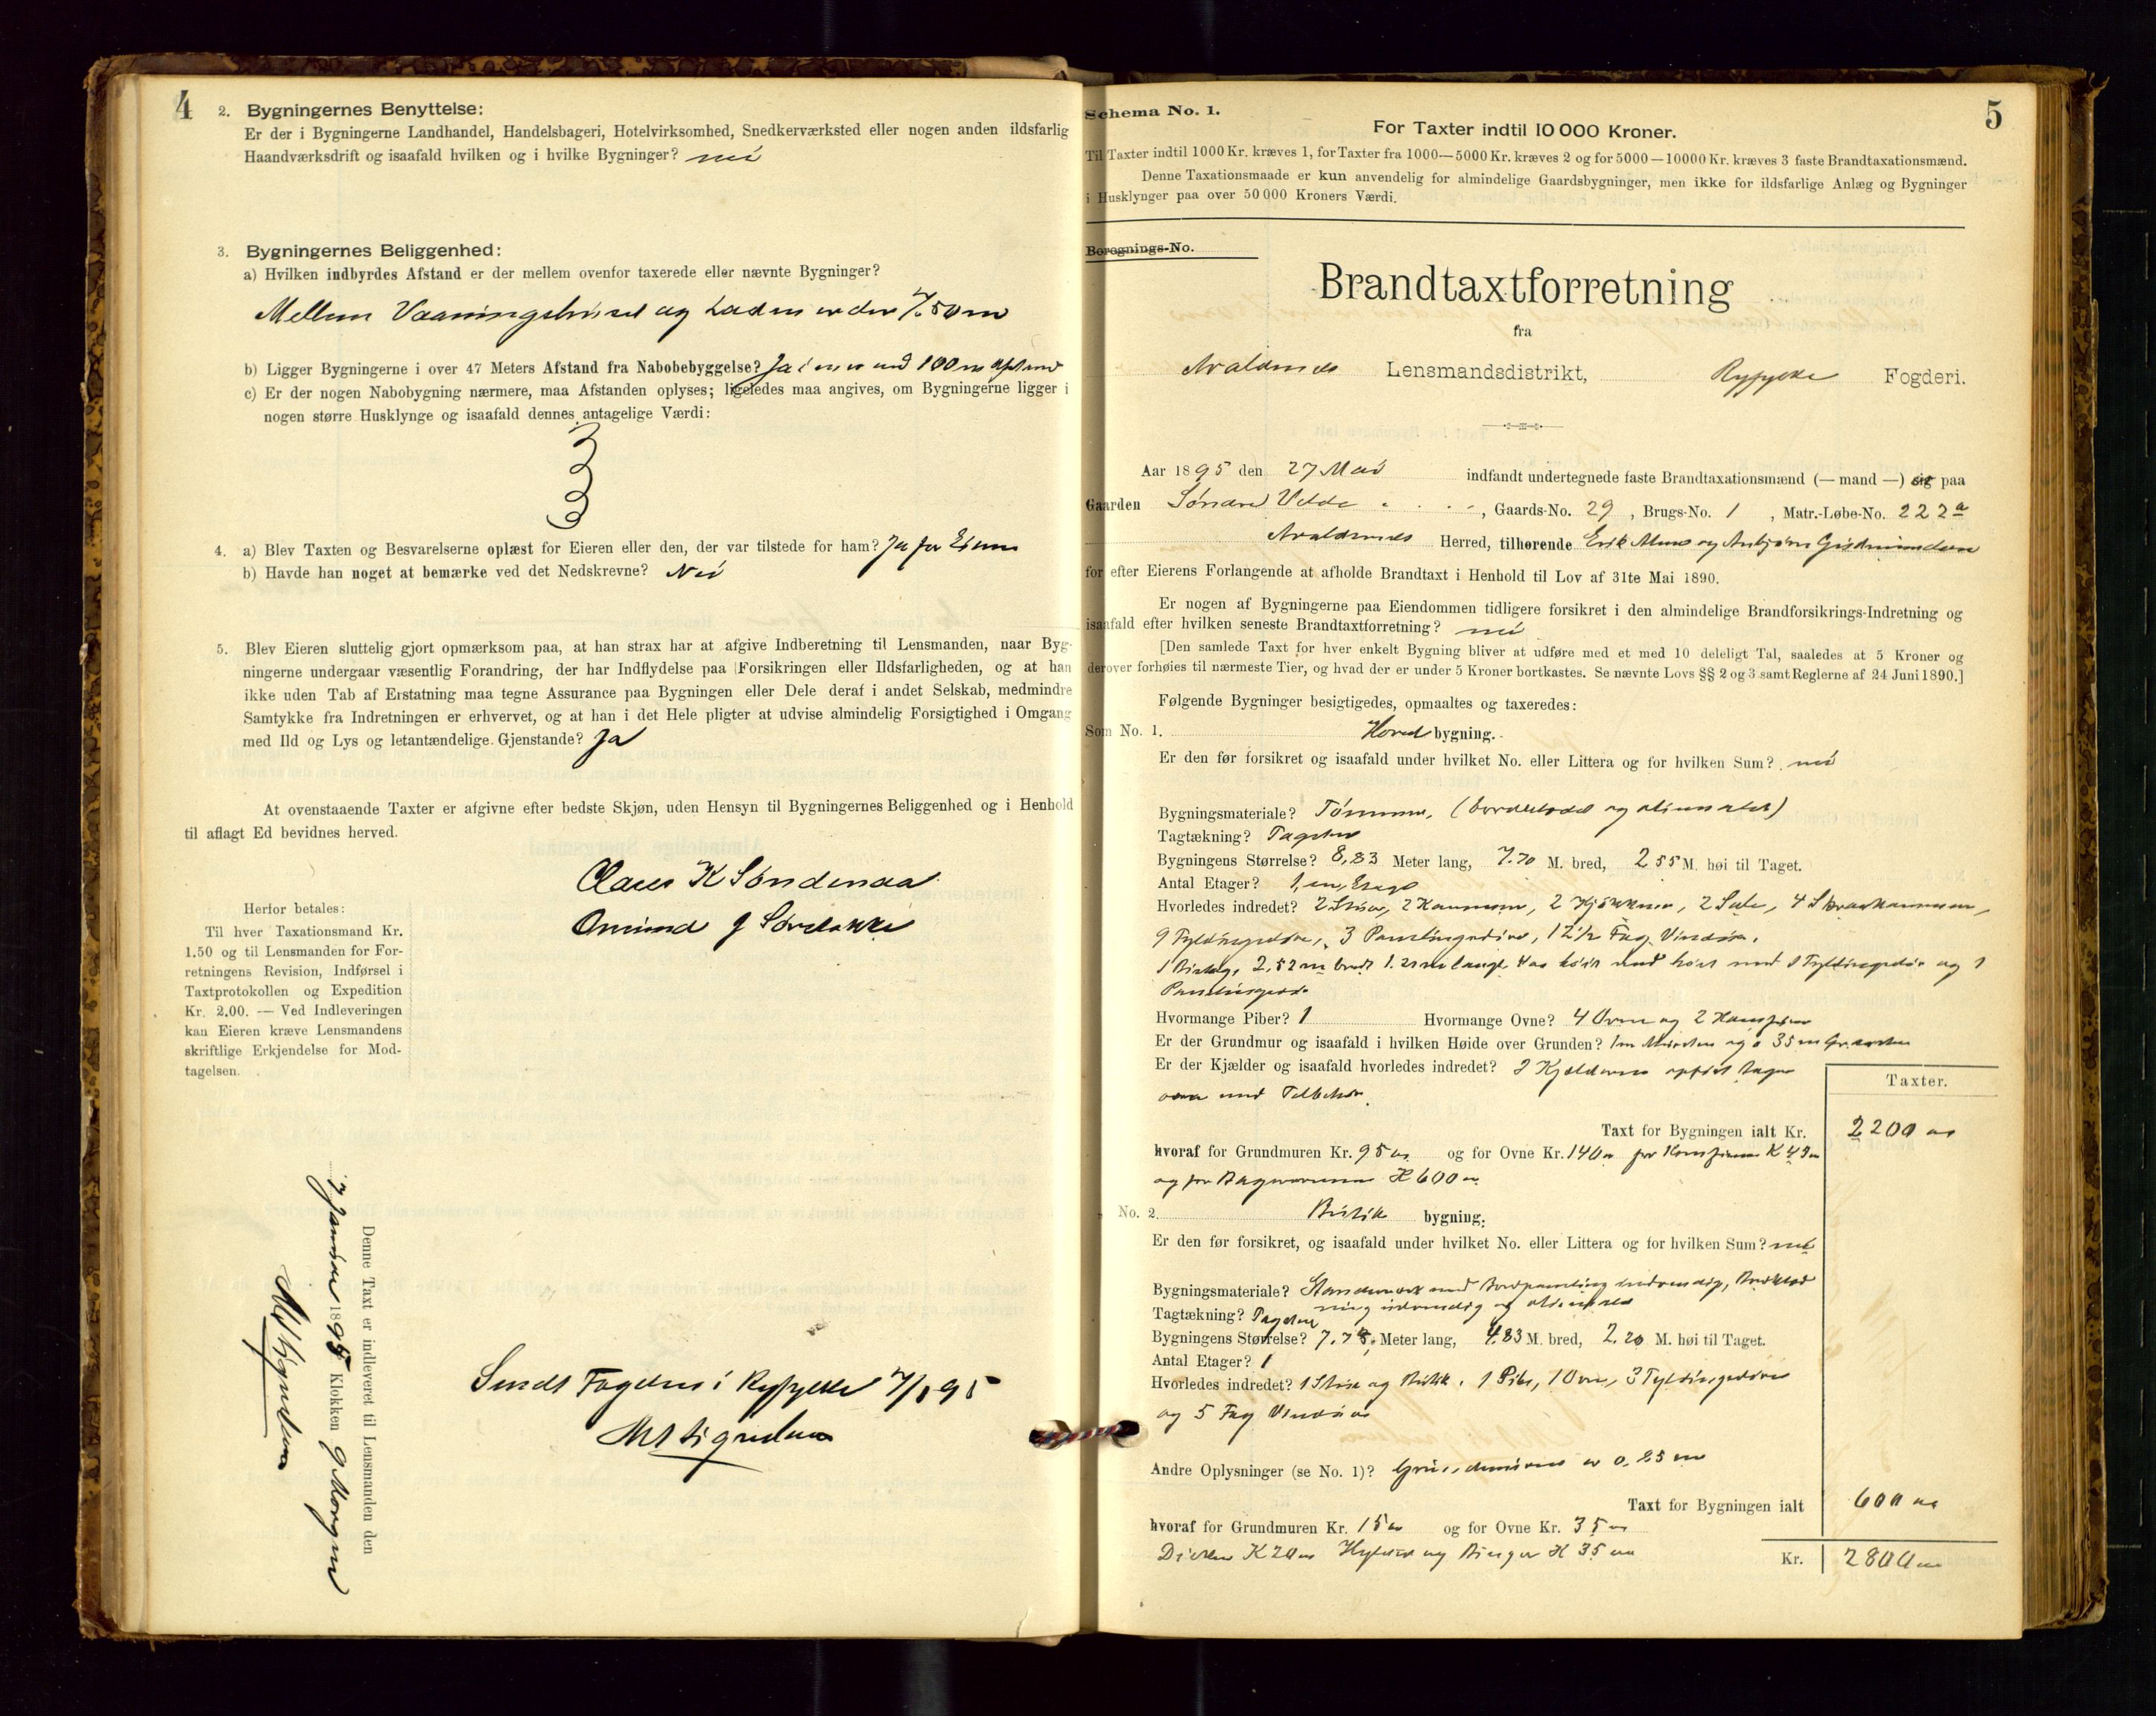 4
2. Bygningernes Benyttelse:
Er der i Bygningerne Landhandel, Handelsbageri, Hotelvirksomhed, Snedkerværksted eller nogen anden ildsfarlig
Haandværksdrift og isaafald hvilken og i hvilke Bygninger? nei
3. Bygningernes Beliggenhed:
a) Hvilken indbyrdes Afstand er der mellem ovenfor taxerede eller nævnte Bygninger?
Mellem Vaaningshuset og Laden er der 7,50 m
b) Ligger Bygningerne i over 47 Meters Afstand fra Nabobebyggelse? Ja 100 m Afstand
c) Er der nogen Nabobygning nærmere, maa Afstanden oplyses; ligeledes maa angives, om Bygningerne ligger i
nogen større Husklynge og isaafald dennes antagelige Værdi:
4. a) Blev Taxten og Besvarelserne oplæst for Eieren eller den, der var tilstede for ham? Ja for Eieren
b) Havde han noget at bemærke ved det Nedskrevne? Nei
5. Blev Eieren sluttelig gjort opmærksom paa, at han strax har at afgive Indberetning til Lensmanden, naar Byg-
ningerne undergaar væsentlig Forandring, der har Indflydelse paa Forsikringen eller Ildsfarligheden, og at han
ikke uden Tab af Erstatning maa tegne Assurance paa Bygningen eller Dele deraf i andet Selskab, medmindre
Samtykke fra Indretningen er erhvervet, og at han i det Hele pligter at udvise almindelig Forsigtighed i Omgang
med Ild og Lys og letantændelige Gjenstande? Ja
At ovenstaaende Taxter er afgivne efter bedste Skjøn, uden Hensyn til Bygningernes Beliggenhed og i Henhold
til aflagt Ed bevidnes herved.
Claus K Søndenaa
Omund J
Herfor betales:
Til hver Taxationsmand Kr.
1.50 og til Lensmanden for For-
retningens Revision, Indførsel i
Taxtprotokollen og Expedition
Kr. 2.00. — Ved Indleveringen
kan Eieren kræve Lensmandens
skriftlige Erkjendelse for Mod-
tagelsen.
Denne Taxt er indleveret til Lensmanden den
7 Januar 1895 Klokken 9 Morgen
Sendt Fogden i Ryfylke 7/1 95
5
Schema No. 1.
For Taxter indtil 10 000 Kroner.
Til Taxter indtil 1000 Kr. kræves 1, for Taxter fra 1000—5000 Kr. kræves 2 og for 5000—10000 Kr. kræves 3 faste Brandtaxationsmænd.
Denne Taxationsmaade er kun anvendelig for almindelige Gaardsbygninger, men ikke for ildsfarlige Anlæg og Bygninger
i Husklynger paa over 50 000 Kroners Værdi.
Beregnings-No.
Brandtaxtforretning
fra
Avaldsnes Lensmandsdistrikt, Ryfylke Fogderi.
Aar 1895 den 27 Mai indfandt undertegnede faste Brandtaxationsmænd (— mand —) sig paa
Gaarden Søndre Velde, Gaards-No. 29, Brugs-No. 1, Matr.-Løbe-No. 222a
Avaldsnes Herred, tilhørende Erik og
for efter Eierens Forlangende at afholde Brandtaxt i Henhold til Lov af 31te Mai 1890.
Er nogen af Bygningerne paa Eiendommen tidligere forsikret i den almindelige Brandforsikrings-Indretning og
isaafald efter hvilken seneste Brandtaxtforretning? nei
[Den samlede Taxt for hver enkelt Bygning bliver at udføre med et med 10 deleligt Tal, saaledes at 5 Kroner og
derover forhøies til nærmeste Tier, og hvad der er under 5 Kroner bortkastes. Se nævnte Lovs §§ 2 og 3 samt Reglerne af 24 Juni 1890.]
Følgende Bygninger besigtigedes, opmaaltes og taxeredes:
Som No. 1. Hoved bygning.
Er den før forsikret og isaafald under hvilket No. eller Littera og for hvilken Sum? nei
Bygningsmateriale? Tømmer, (bordklædt og oliemalet)
Tagtækning? Tagsten
Bygningens Størrelse? 8,83 Meter lang, 7.70 M. bred, 2 55 M. høi til Taget.
Antal Etager? 1, en, Etage
Hvorledes indredet? 2 Stuer, 2 Kammere, 2 Kjøkkener, 2 Sale, 4 Skraakammere,
9 Fyldingsdøre, 3 Panelingsdøre, 12 1/2 Fag Vinduer.
1 Bislag, 2,52 m bredt med 1 Fyldingsdør og 1
Panelingsdør
Hvormange Piber? 1 Hvormange Ovne? 4 Ovne og 2
Er der Grundmur og isaafald i hvilken Høide over Grunden?
Er der Kjælder og isaafald hvorledes indredet? 2 Kjældere
med Tilbehør.
Taxter.
Taxt for Bygningen ialt Kr. 2200
hvoraf for Grundmuren Kr. 95 og for Ovne Kr. 140 for
og for K 600
No. 2. Butik bygning.
Er den før forsikret, og isaafald under hvilket No. eller Littera og for hvilken Sum? nei
Bygningsmateriale? med Bordpaneling indvendig, Bordklæd
ning udvendig og oliemalet
Tagtækning? Tagsten
Bygningens Størrelse? 7.78 Meter lang, 4.83 M. bred, 2.20 M. høi til Taget.
Antal Etager? 1
Hvorledes indredet? 1 Stue og Butik. 1 Pibe, 1 Ovn, 3 Fyldingsdøre
og 5 Fag Vinduer
Andre Oplysninger (se No. 1)? Grundmuren er 0.25 m
Taxt for Bygningen ialt 600
hvoraf for Grundmuren Kr. 15 og for Ovne Kr. 35
Disken K 20 Hylder og Binger K 35
Kr. 2800